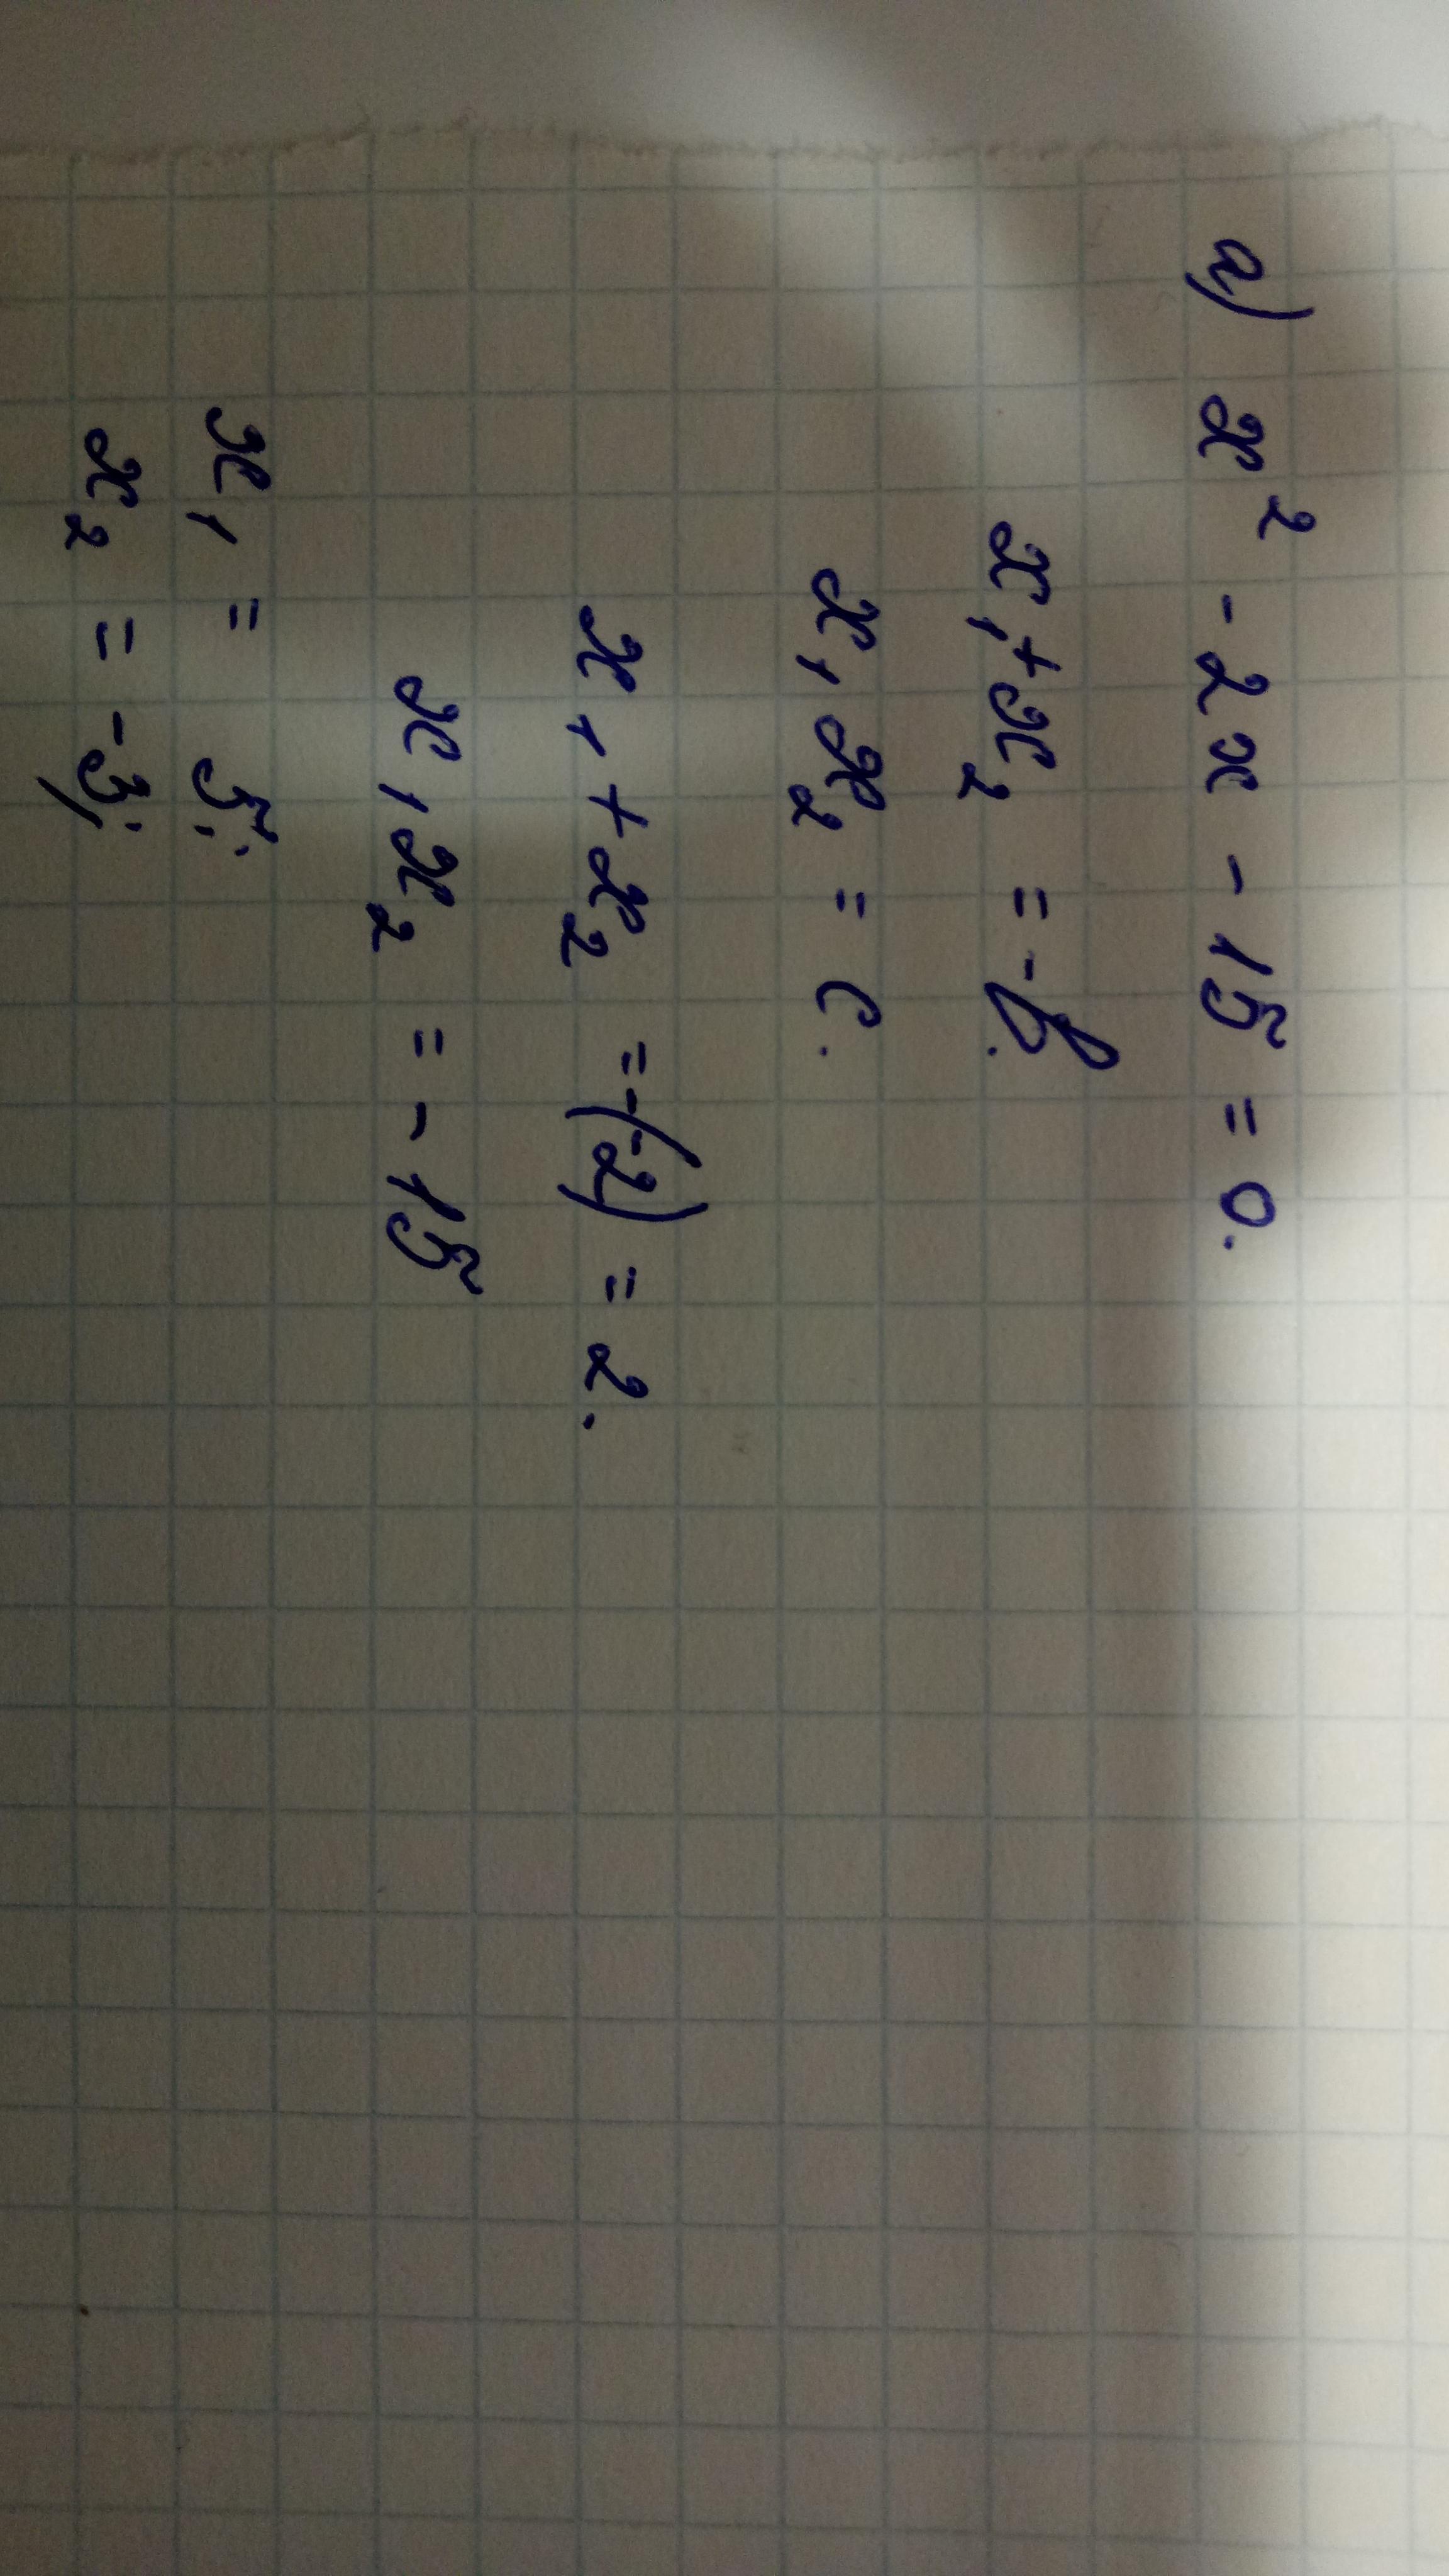 a) x² - 2x - 15 = 0.
x₁ + x₂ = -b.
x₁ x₂ = c.
x₁ + x₂ = -(-2) = 2.
x₁ x₂ = -15
x₁ = 5;
x₂ = -3;